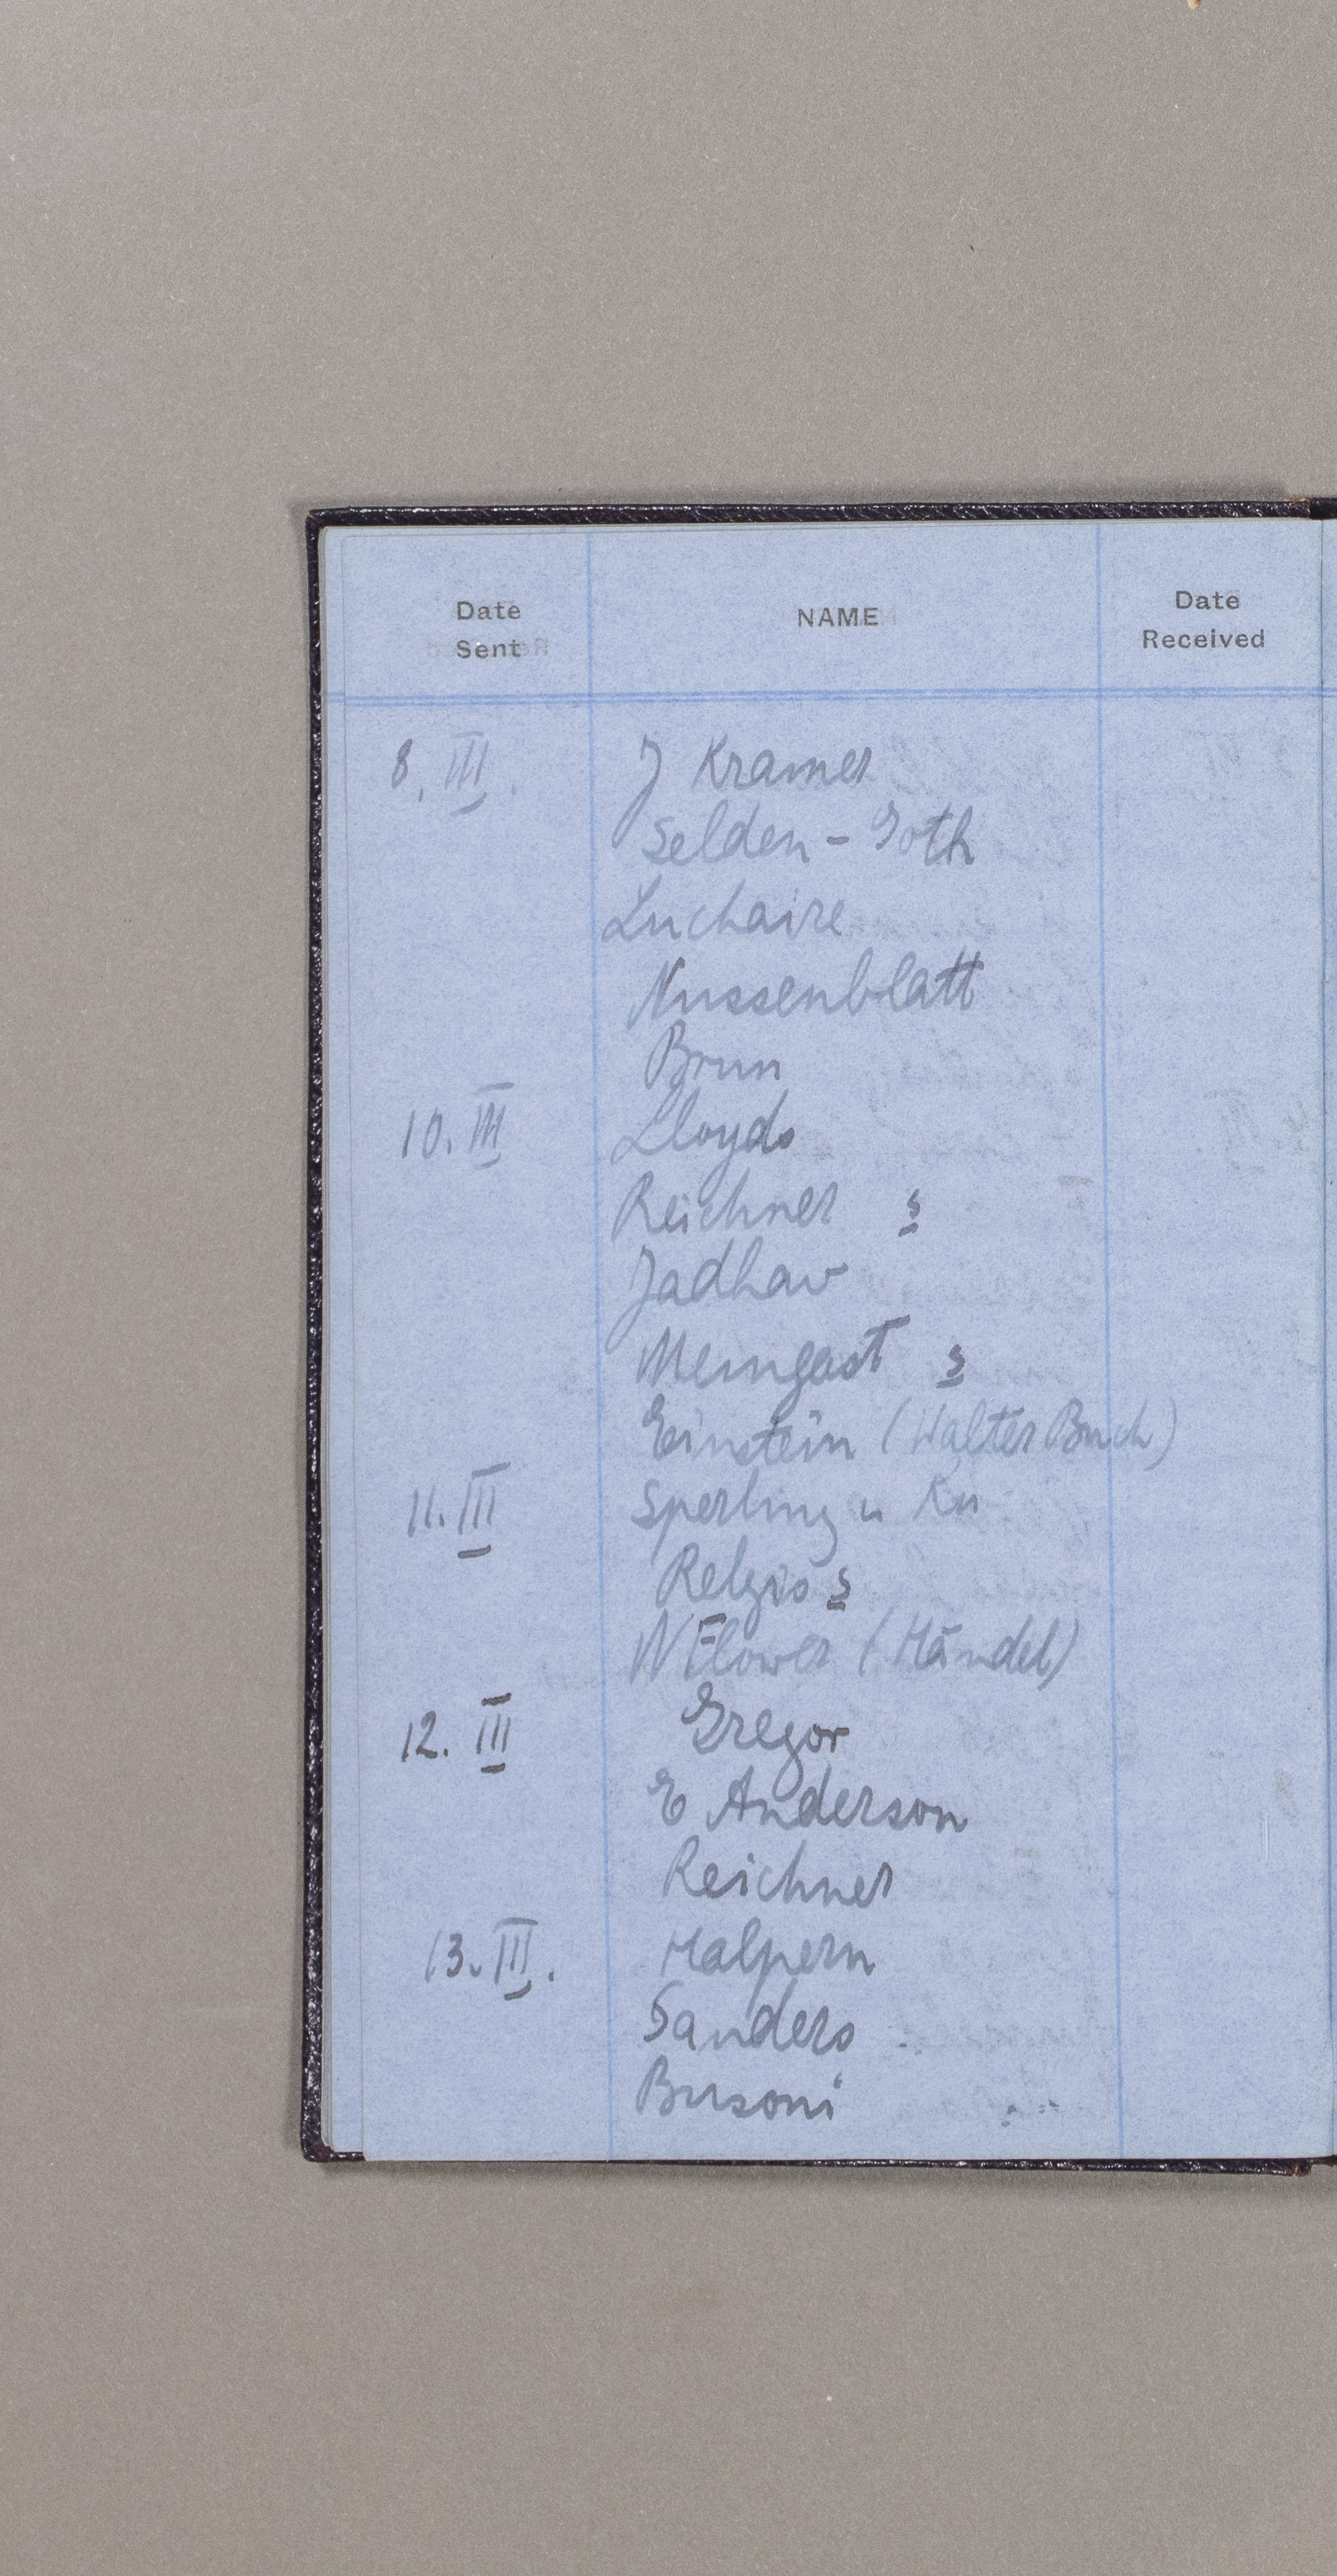 Date Sent NAME Date Received
8. III. J Kramer
Selden - Goth
Luchaire
Nussenblatt
Brun
10. III Lloyds
Reichner s
Jadhav
Meingast s
Einstein (Walter Buch)
11. III Sperling u Ku
Relgis s
N Flower (Händel)
12. III Gregor
E Anderson
Reichner
13. III. Halpern
Sanders
Busoni